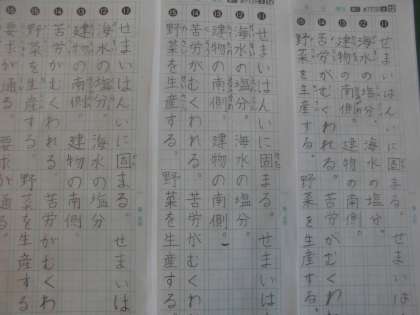 ⑪ せまいはんいに固まる。 せまいは
⑫ 海水の塩分。 海水の塩分。
⑬ 建物の南側。 建物の南側。
⑭ 苦労がむくわれる。 苦労がむくわ
⑮ 野菜を生産する。 野菜を生産する。
⑪ せまいはんいに固まる。 せまいは
⑫ 海水の塩分。 海水の塩分。
⑬ 建物の南側。 建物の南側。
⑭ 苦労がむくわれる。 苦労がむくわ
⑮ 野菜を生産する。 野菜を生産する
⑪ せまいはんいに固まる。 せまいは
⑫ 海水の塩分 海水の塩分
⑬ 建物の南側 建物の南側
⑭ 苦労がむくわれる。 苦労がむくわ
⑮ 野菜を生産する。 野菜を生産する
⑯ 要求が通る。 要求が通る。